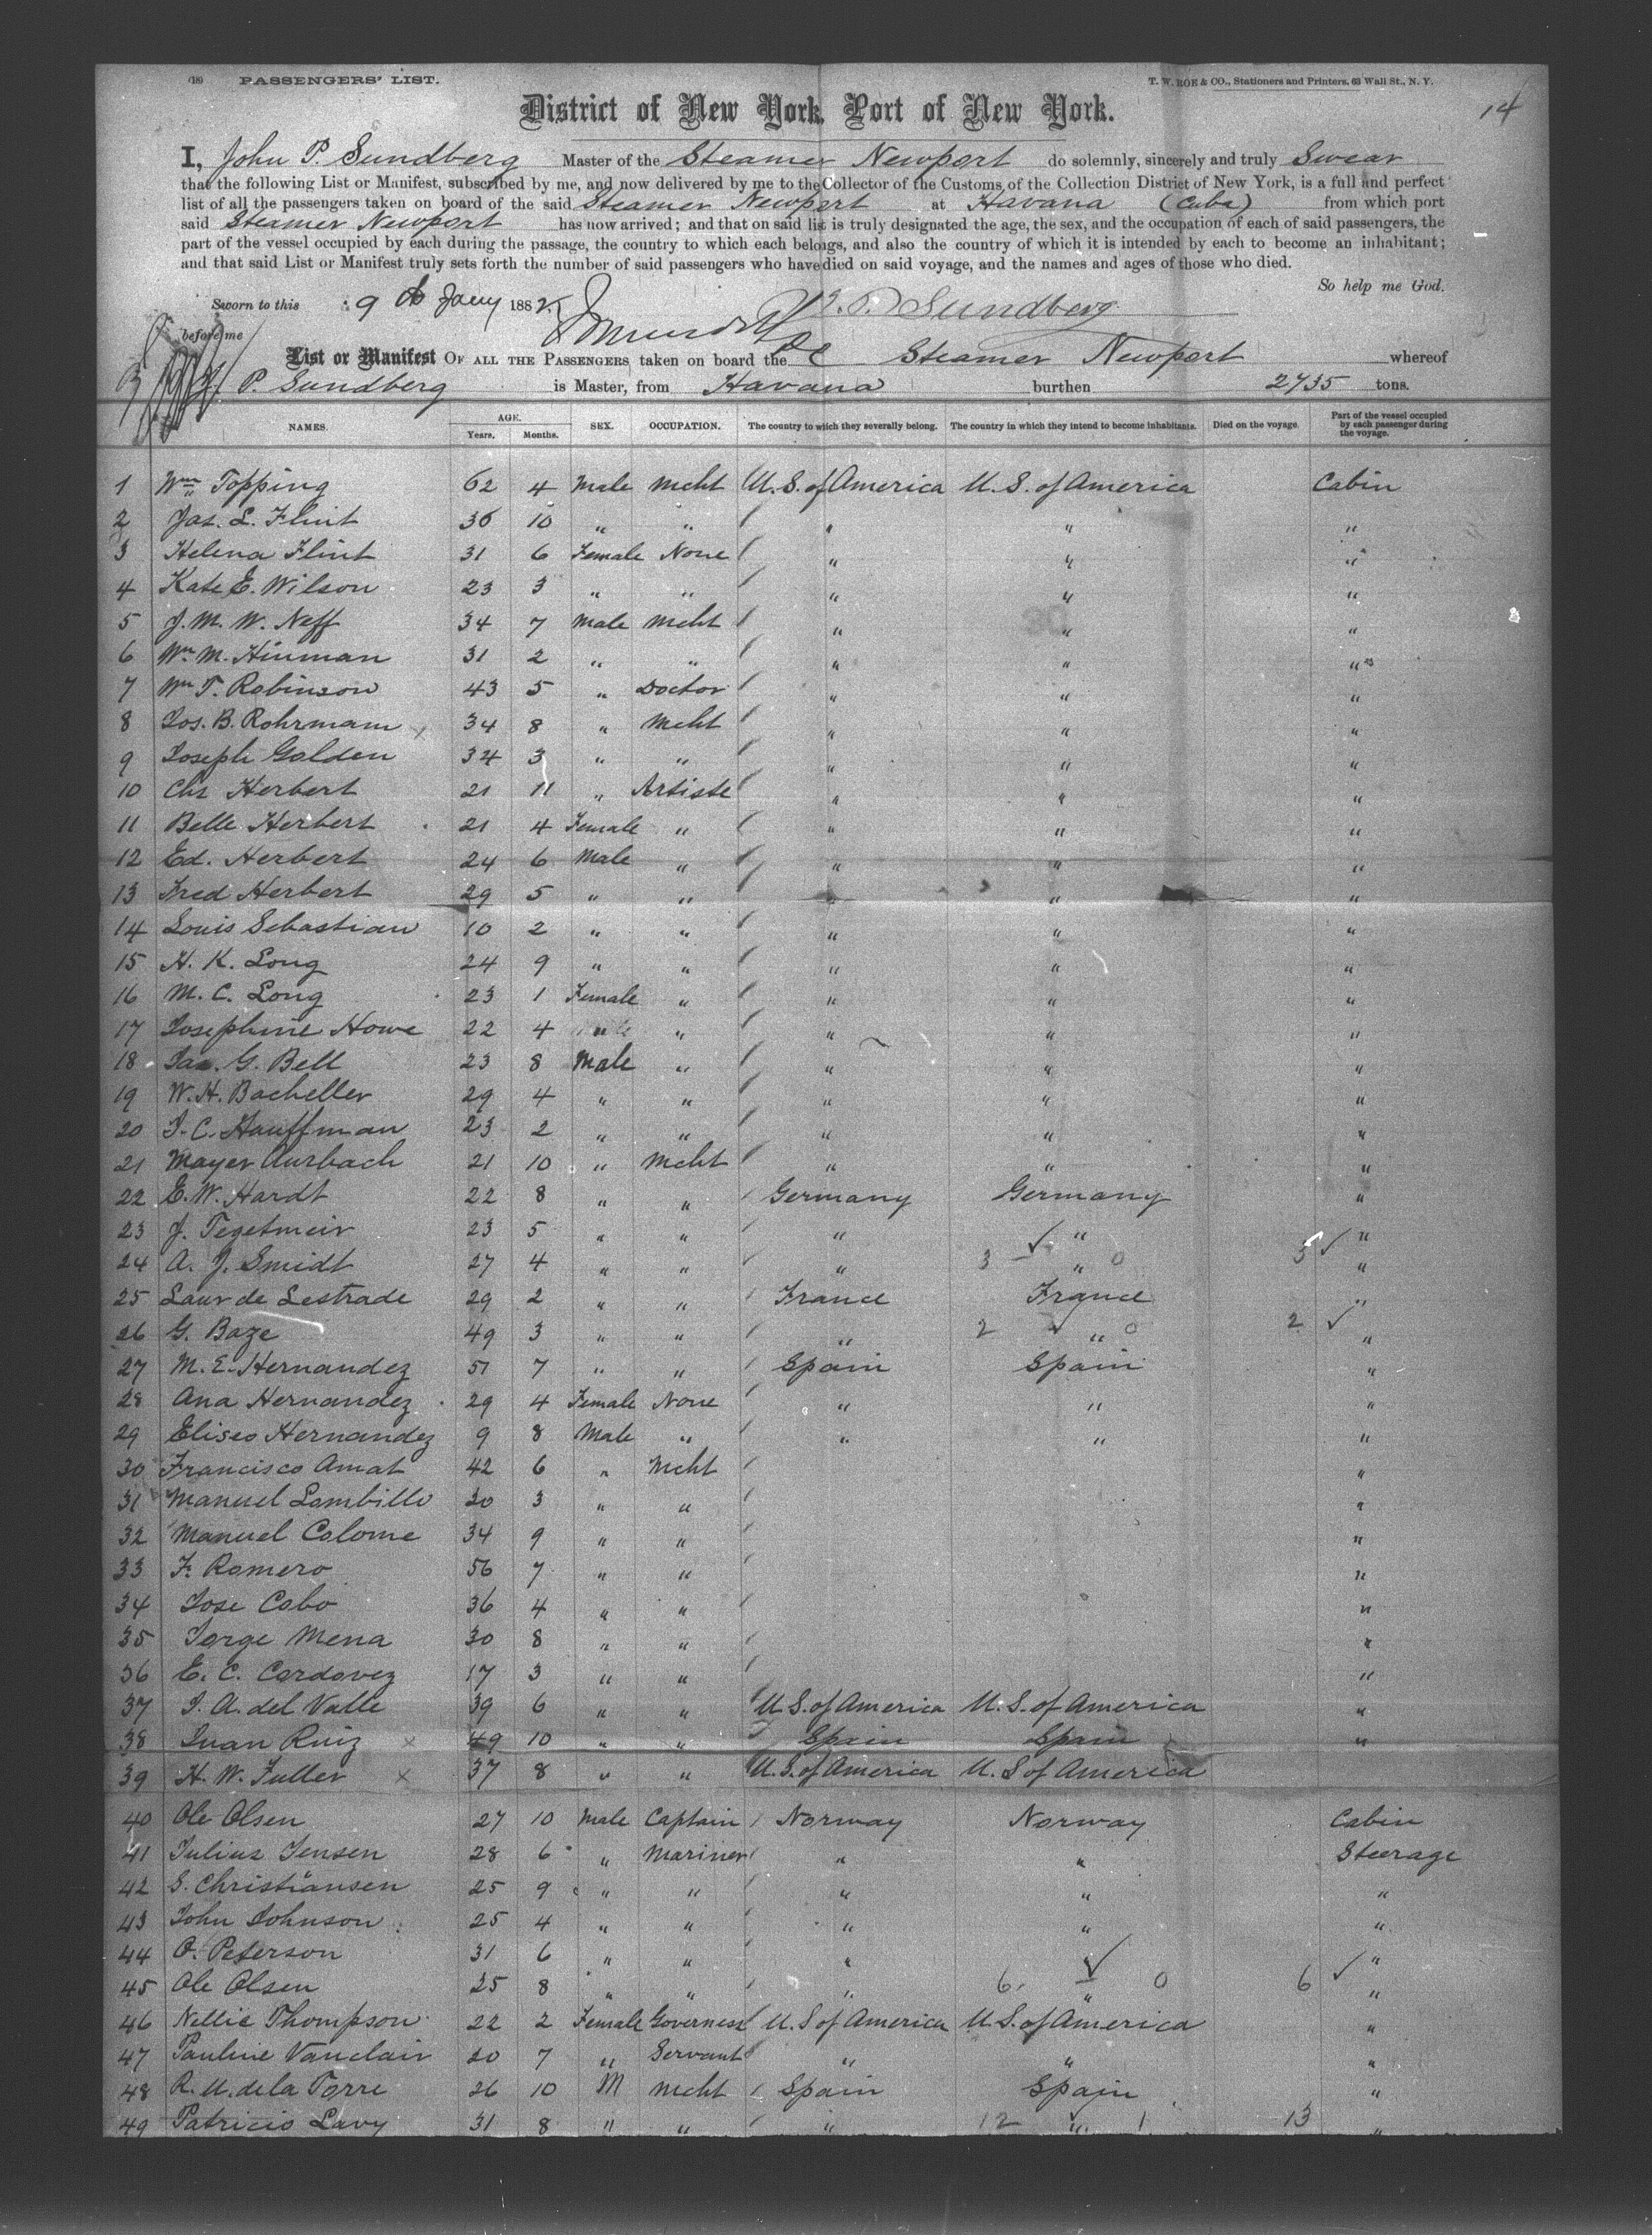 (18) PASSENGERS' LIST. T. W. ROE & CO., Stationers and Printers, 63 Wall St., N. Y.
14
District of New York, Port of New York.
I, John P. Sundberg Master of the Steamer Newport do solemnly, sincerely and truly Swear
that the following List or Manifest, subscribed by me, and now delivered by me to the Collector of the Customs of the Collection District of New York, is a full and perfect
list of all the passengers taken on board of the said Steamer Newport at Havana (Cuba) from which port
said Steamer Newport has now arrived; and that on said list is truly designated the age, the sex, and the occupation of each of said passengers, the
part of the vessel occupied by each during the passage, the country to which each belongs, and also the country of which it is intended by each to become an inhabitant;
and that said List or Manifest truly sets forth the number of said passengers who have died on said voyage, and the names and ages of those who died.
So help me God.
Sworn to this 9th Jany 1882 J. P. Sundberg
before me
List or Manifest OF ALL THE PASSENGERS taken on board the Steamer Newport whereof
J. P. Sundberg is Master, from Havana burthen 2735 tons.
NAMES. AGE. Years. Months. SEX. OCCUPATION. The country to which they severally belong. The country in which they intend to become inhabitants. Died on the voyage. Part of the vessel occupied by each passenger during the voyage.
1 Wm Topping 62 4 Male Mcht U.S. of America U.S. of America Cabin
2 Jas. L. Flint 36 10 " " " " "
3 Helena Flint 31 6 Female None " " "
4 Kate E. Wilson 23 3 " " " " "
5 J. M. W. Neff 34 7 Male Mcht " " "
6 Wm M. Hinman 31 2 " " " " "
7 Wm T. Robinson 43 5 " Doctor " " "
8 Jos. B. Rohrmann 34 8 " Mcht " " "
9 Joseph Golden 34 3 " " " " "
10 Chs Herbert 21 11 " Artiste " " "
11 Belle Herbert 21 4 Female " " " "
12 Ed. Herbert 24 6 Male " " " "
13 Fred Herbert 29 5 " " " " "
14 Louis Sebastian 10 2 " " " " "
15 H. K. Long 24 9 " " " " "
16 M. C. Long 23 1 Female " " " "
17 Josephine Howe 22 4 " " " " "
18 Jas. G. Bell 23 8 Male " " " "
19 W. H. Bacheller 29 4 " " " " "
20 J. C. Hauffman 23 2 " " " " "
21 Mayer Aurbach 21 10 " Mcht " " "
22 E. W. Hardt 22 8 " " Germany Germany "
23 J. Tegetmeir 23 5 " " " " "
24 A. J. Smidt 27 4 " " " 3 " 0 3 ✓ "
25 Laur de Lestrade 29 2 " " France France "
26 G. Baze 49 3 " " " 2 ✓ " 0 2 ✓ "
27 M. E. Hernandez 51 7 " " Spain Spain "
28 Ana Hernandez 29 4 Female None " " "
29 Eliseo Hernandez 9 8 Male " " " "
30 Francisco Amat 42 6 " Mcht "
31 Manuel Lombillo 30 3 " " "
32 Manuel Colome 34 9 " " "
33 F. Romero 56 7 " " "
34 Jose Cabo 36 4 " " "
35 Jorge Mena 30 8 " " "
36 E. C. Cordovez 17 3 " " "
37 J. A. del Valle 39 6 " " U.S. of America U.S. of America "
38 Juan Ruiz x 49 10 " " Spain Spain "
39 H. W. Fuller x 37 8 " " U.S. of America U.S of America
40 Ole Olsen 27 10 Male Captain Norway Norway Cabin
41 Julius Jensen 28 6 " Mariner " " Steerage
42 S. Christiansen 25 9 " " " " "
43 John Johnson 25 4 " " " " "
44 O. Peterson 31 6 " " " ✓ ✓ "
45 Ole Olsen 25 8 " " " 6 " 0 6 "
46 Nellie Thompson 22 2 Female Governess U.S of America U.S. of America "
47 Pauline Vanclair 20 7 " Servant " " "
48 R. U. de la Torre 26 10 M Mcht Spain Spain "
49 Patricio Lavy 31 8 " " " 12 " 1 13 "